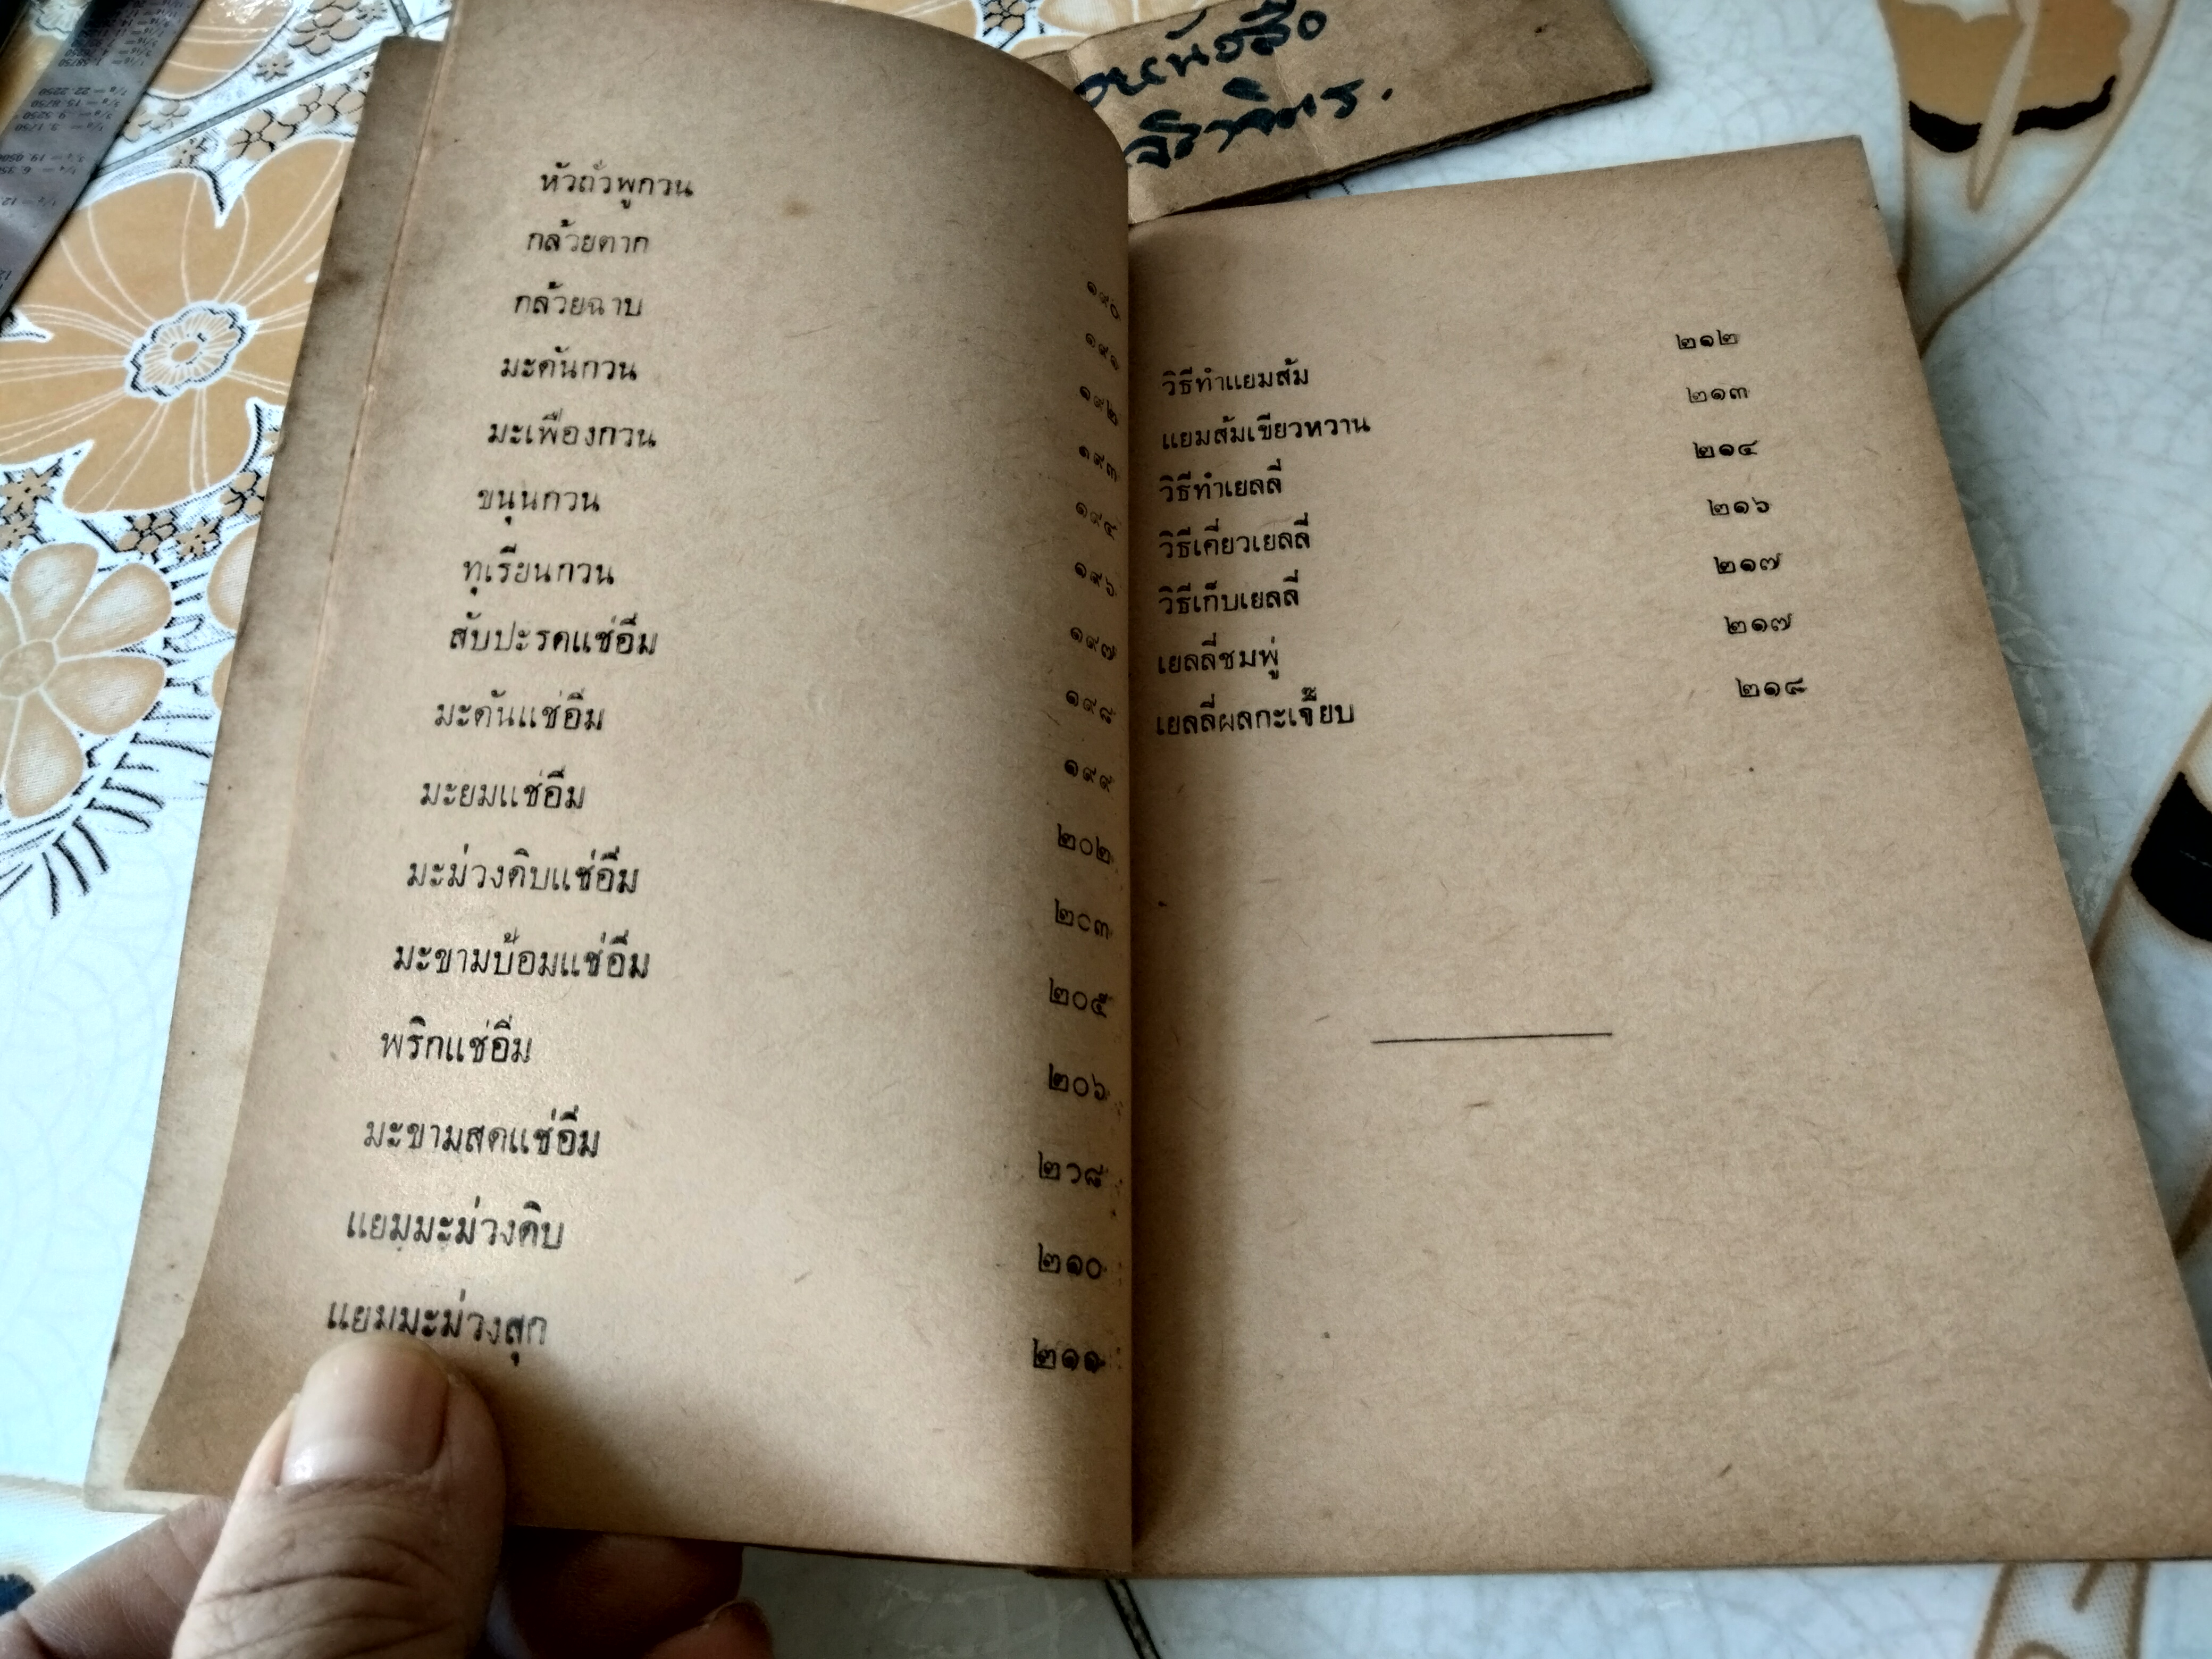 หัวถั่วพูกวน ๑๙๐
กล้วยตาก ๑๙๑
กล้วยฉาบ ๑๙๒
มะดันกวน ๑๙๓
มะเฟืองกวน ๑๙๔
ขนุนกวน ๑๙๖
ทุเรียนกวน ๑๙๗
สับปะรดแช่อิ่ม ๑๙๘
มะดันแช่อิ่ม ๑๙๙
มะยมแช่อิ่ม ๒๐๒
มะม่วงดิบแช่อิ่ม ๒๐๓
มะขามป้อมแช่อิ่ม ๒๐๕
พริกแช่อิ่ม ๒๐๖
มะขามสดแช่อิ่ม ๒๐๘
แยมมะม่วงดิบ ๒๑๐
แยมมะม่วงสุก ๒๑๑
วิธีทำแยมส้ม ๒๑๒
แยมส้มเขียวหวาน ๒๑๓
วิธีทำเยลลี่ ๒๑๔
วิธีเคี่ยวเยลลี่ ๒๑๖
วิธีเก็บเยลลี่ ๒๑๗
เยลลี่ชมพู่ ๒๑๗
เยลลี่ผลกะเจี๊ยบ ๒๑๘